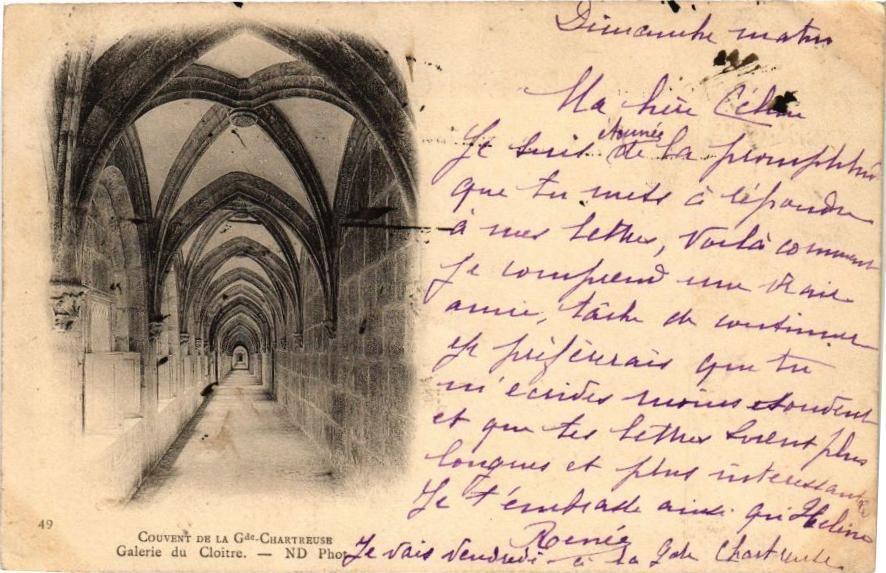 Dimanche matin
Ma chère Céline
Je suit étonnée de la promptitude
que tu mets à répondre
à mes lettres, voilà comment
je comprend une vraie
amie, tâche de continuer
je préfèrerais que tu
m'écrides moins souvent
et que tes lettres soient plus
longues et plus interessantes
Je t'embrasse ainsi qu'Hélène
Renée
Je vais vendredi à la Gde Chartreuse
49
COUVENT DE LA Gde-CHARTREUSE
Galerie du Cloître. — ND Phot